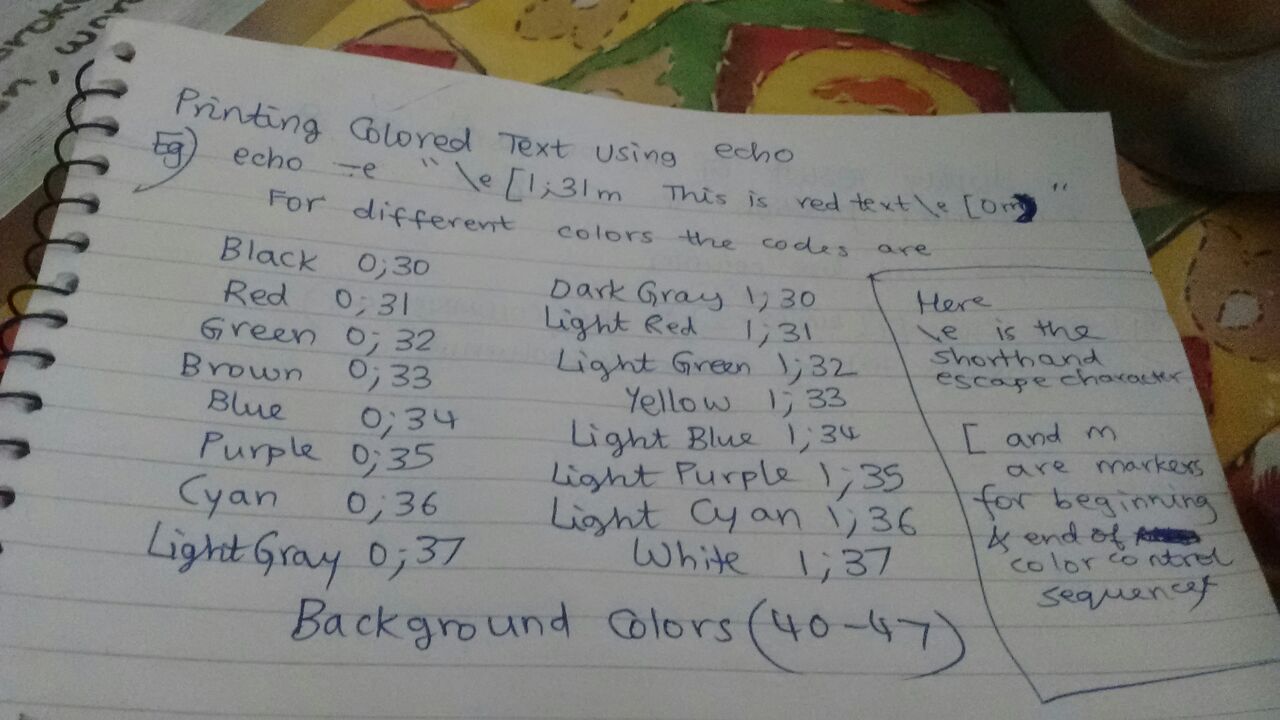 Printing Colored Text using echo
Eg) echo -e "\e [1;31m This is red text \e [0m "
For different colors the codes are
Black 0;30
Red 0;31
Green 0;32
Brown 0;33
Blue 0;34
Purple 0;35
Cyan 0;36
Light Gray 0;37
Dark Gray 1;30
Light Red 1;31
Light Green 1;32
Yellow 1;33
Light Blue 1;34
Light Purple 1;35
Light Cyan 1;36
White 1;37
Here
\e is the
shorthand
escape character
[ and m
are markers
for beginning
& end of
color control
sequences
Background Colors (40-47)